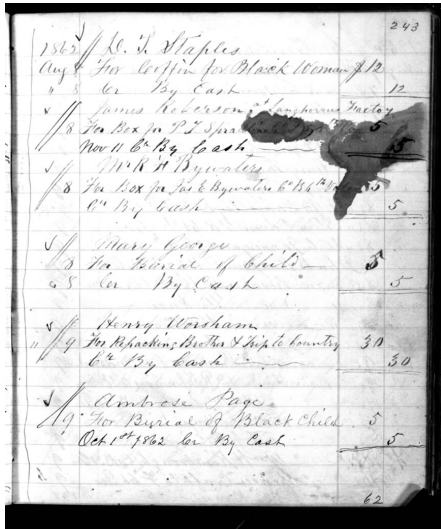 243
1862 D. T. Staples
Aug 8 For Coffin for Black Woman $12
" 8 Cr By Cash 12
James Roberson at Langhornes Factory
8 For Box for P T 5
Nov 11 Cr By Cash 5
Mr R H Bywaters
8 For Box for Jas E Bywaters Co B 6th 5
Cr By Cash 5
Mary George
8 For Burial of Child 5
8 Cr By Cash 5
Henry Worsham
" 9 For Repacking Brother & Trip to Country 30
Cr By Cash 30
Ambrose Page
9 For Burial of Black Child 5
Oct 1st 1862 Cr By Cash 5
62